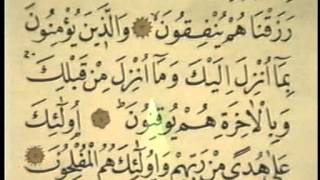 رَزَقْنَاهُمْ يُنْفِقُونَ وَالَّذِينَ يُؤْمِنُونَ
بِمَا أُنْزِلَ إِلَيْكَ وَمَا أُنْزِلَ مِنْ قَبْلِكَ
وَبِالْآخِرَةِ هُمْ يُوقِنُونَ أُولَٰئِكَ
عَلَىٰ هُدًى مِنْ رَبِّهِمْ وَأُولَٰئِكَ هُمُ الْمُفْلِحُونَ